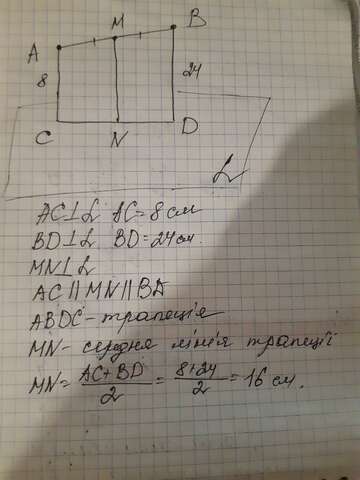 M
B
A
8
24
C
N
D
L
AC⊥L AC=8 см
BD⊥L BD=24 см.
MN⊥L
AC||MN||BD
ABDC-трапеція
MN- середня лінія трапеції
MN= AC+BD/2 = 8+24/2 = 16 см.